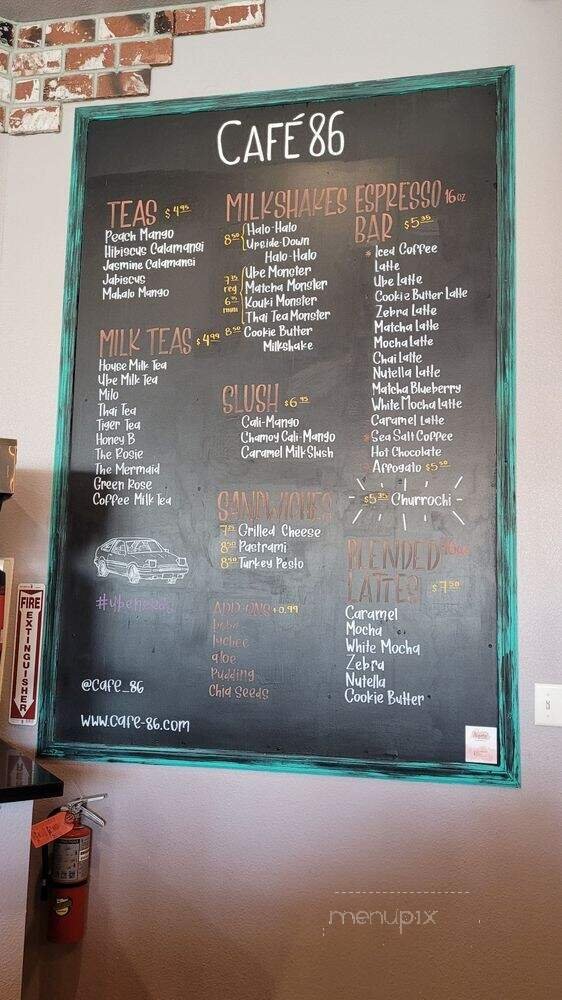 CAFÉ 86
TEAS $4.95
Peach Mango
Hibiscus Calamansi
Jasmine Calamansi
Jabiscus
Mahalo Mango
MILK TEAS $4.99
House Milk Tea
Ube Milk Tea
Milo
Thai Tea
Tiger Tea
Honey B
The Rosie
The Mermaid
Green Rose
Coffee Milk Tea
#ubeneeds
@cafe_86
www.cafe-86.com
MILKSHAKES
8.50 Halo-Halo
Upside-Down
Halo-Halo
7.75 reg Ube Monster
Matcha Monster
6.75 mini Kouki Monster
Thai Tea Monster
8.50 Cookie Butter
Milkshake
SLUSH $6.95
Cali-Mango
Chamoy Cali-Mango
Caramel Milk Slush
SANDWICHES
Grilled Cheese
8.50 Pastrami
8.50 Turkey Pesto
ADD-ONS +0.99
boba
lychee
aloe
Pudding
Chia Seeds
ESPRESSO 16oz
BAR $5.35
* Iced Coffee
Latte
Ube Latte
Cookie Butter Latte
Zebra Latte
Matcha Latte
Mocha Latte
Chai Latte
Nutella Latte
Matcha Blueberry
White Mocha Latte
Caramel Latte
* Sea Salt Coffee
Hot Chocolate
Affogato $5.50
$5.35 Churrochi
BLENDED 16oz
LATTES $7.50
Caramel
Mocha
White Mocha
Zebra
Nutella
Cookie Butter
FIRE
EXTINGUISHER
menupix